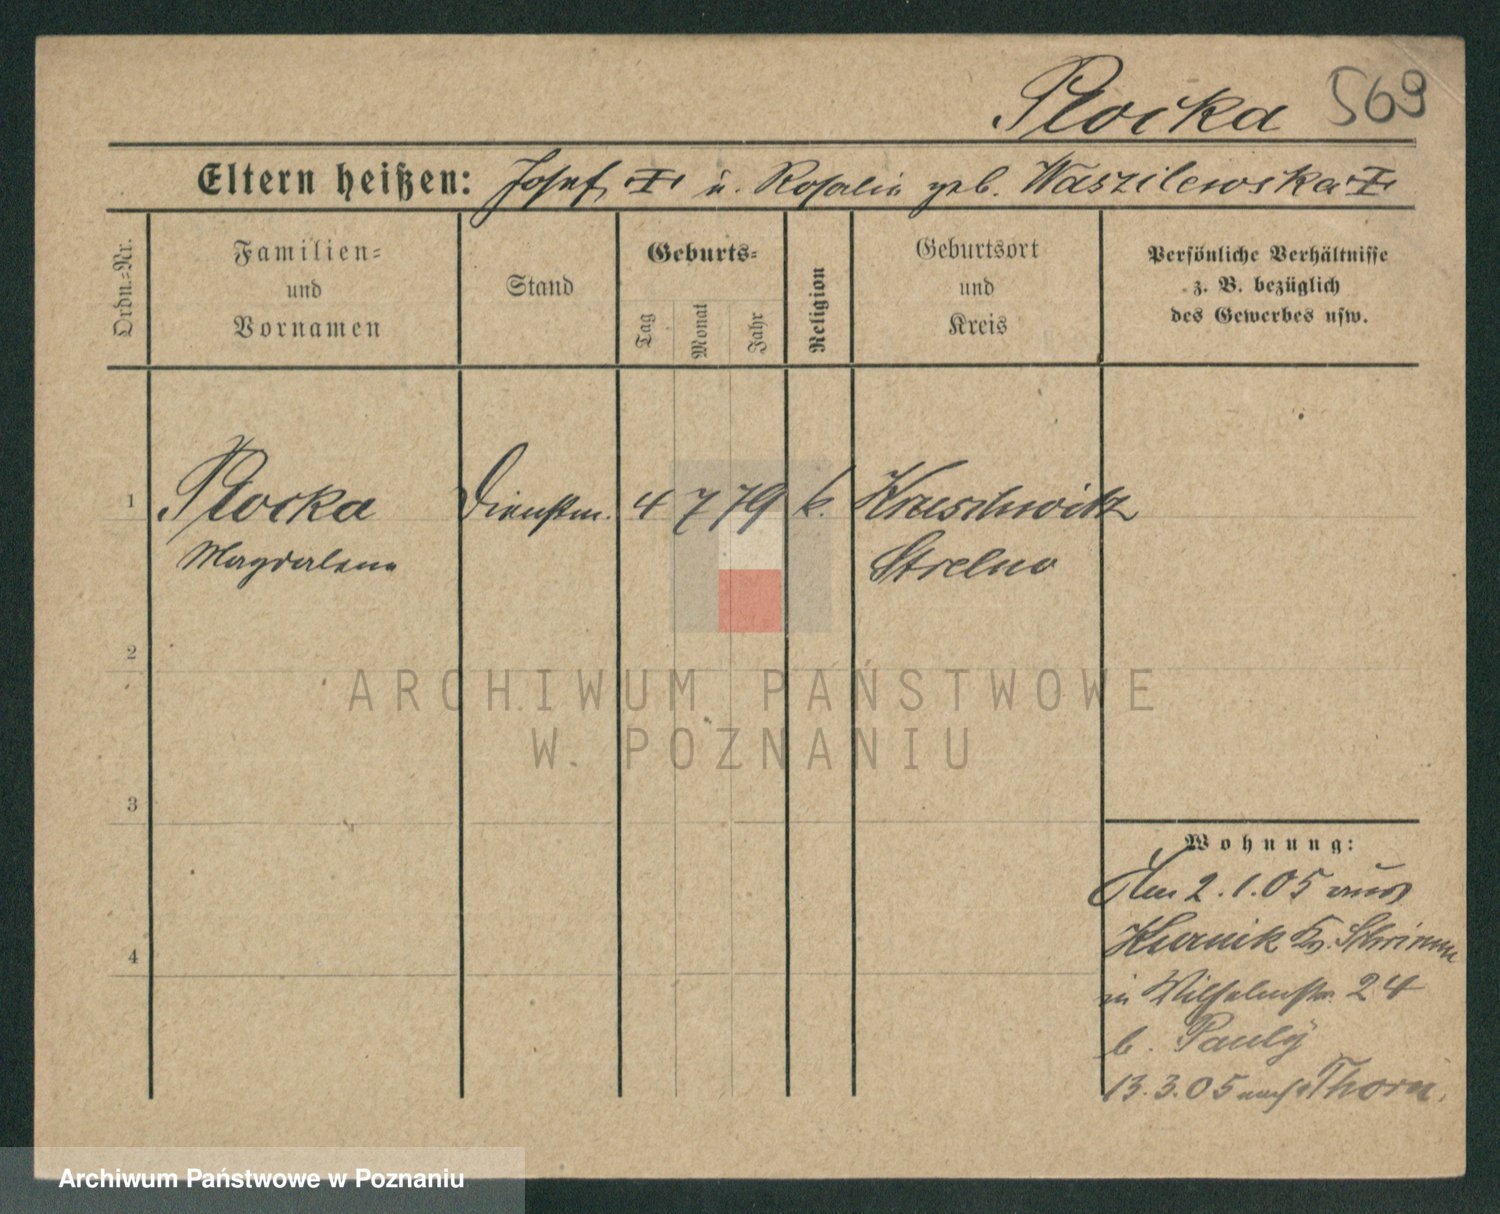 Plocka 569
Eltern heißen: Josef ‡ u. Rosalie geb. Waszilewska ‡
Ordn.-Nr.
Familien-
und
Vornamen
Stand
Geburts-
Tag
Monat
Jahr
Religion
Geburtsort
und
Kreis
Persönliche Verhältnisse
z. B. bezüglich
des Gewerbes usw.
1 Plocka Dienstm. 4 7 79 k. Kruschwitz
Magdalena Strelno
2
ARCHIWUM PAŃSTWOWE
W POZNANIU
3
Wohnung:
Am 2.1.05 aus
Kurnik Kr. Schrimm
4
in Wilhelmstr. 24
b. Pauly
13.3.05 nach Thorn.
Archiwum Państwowe w Poznaniu